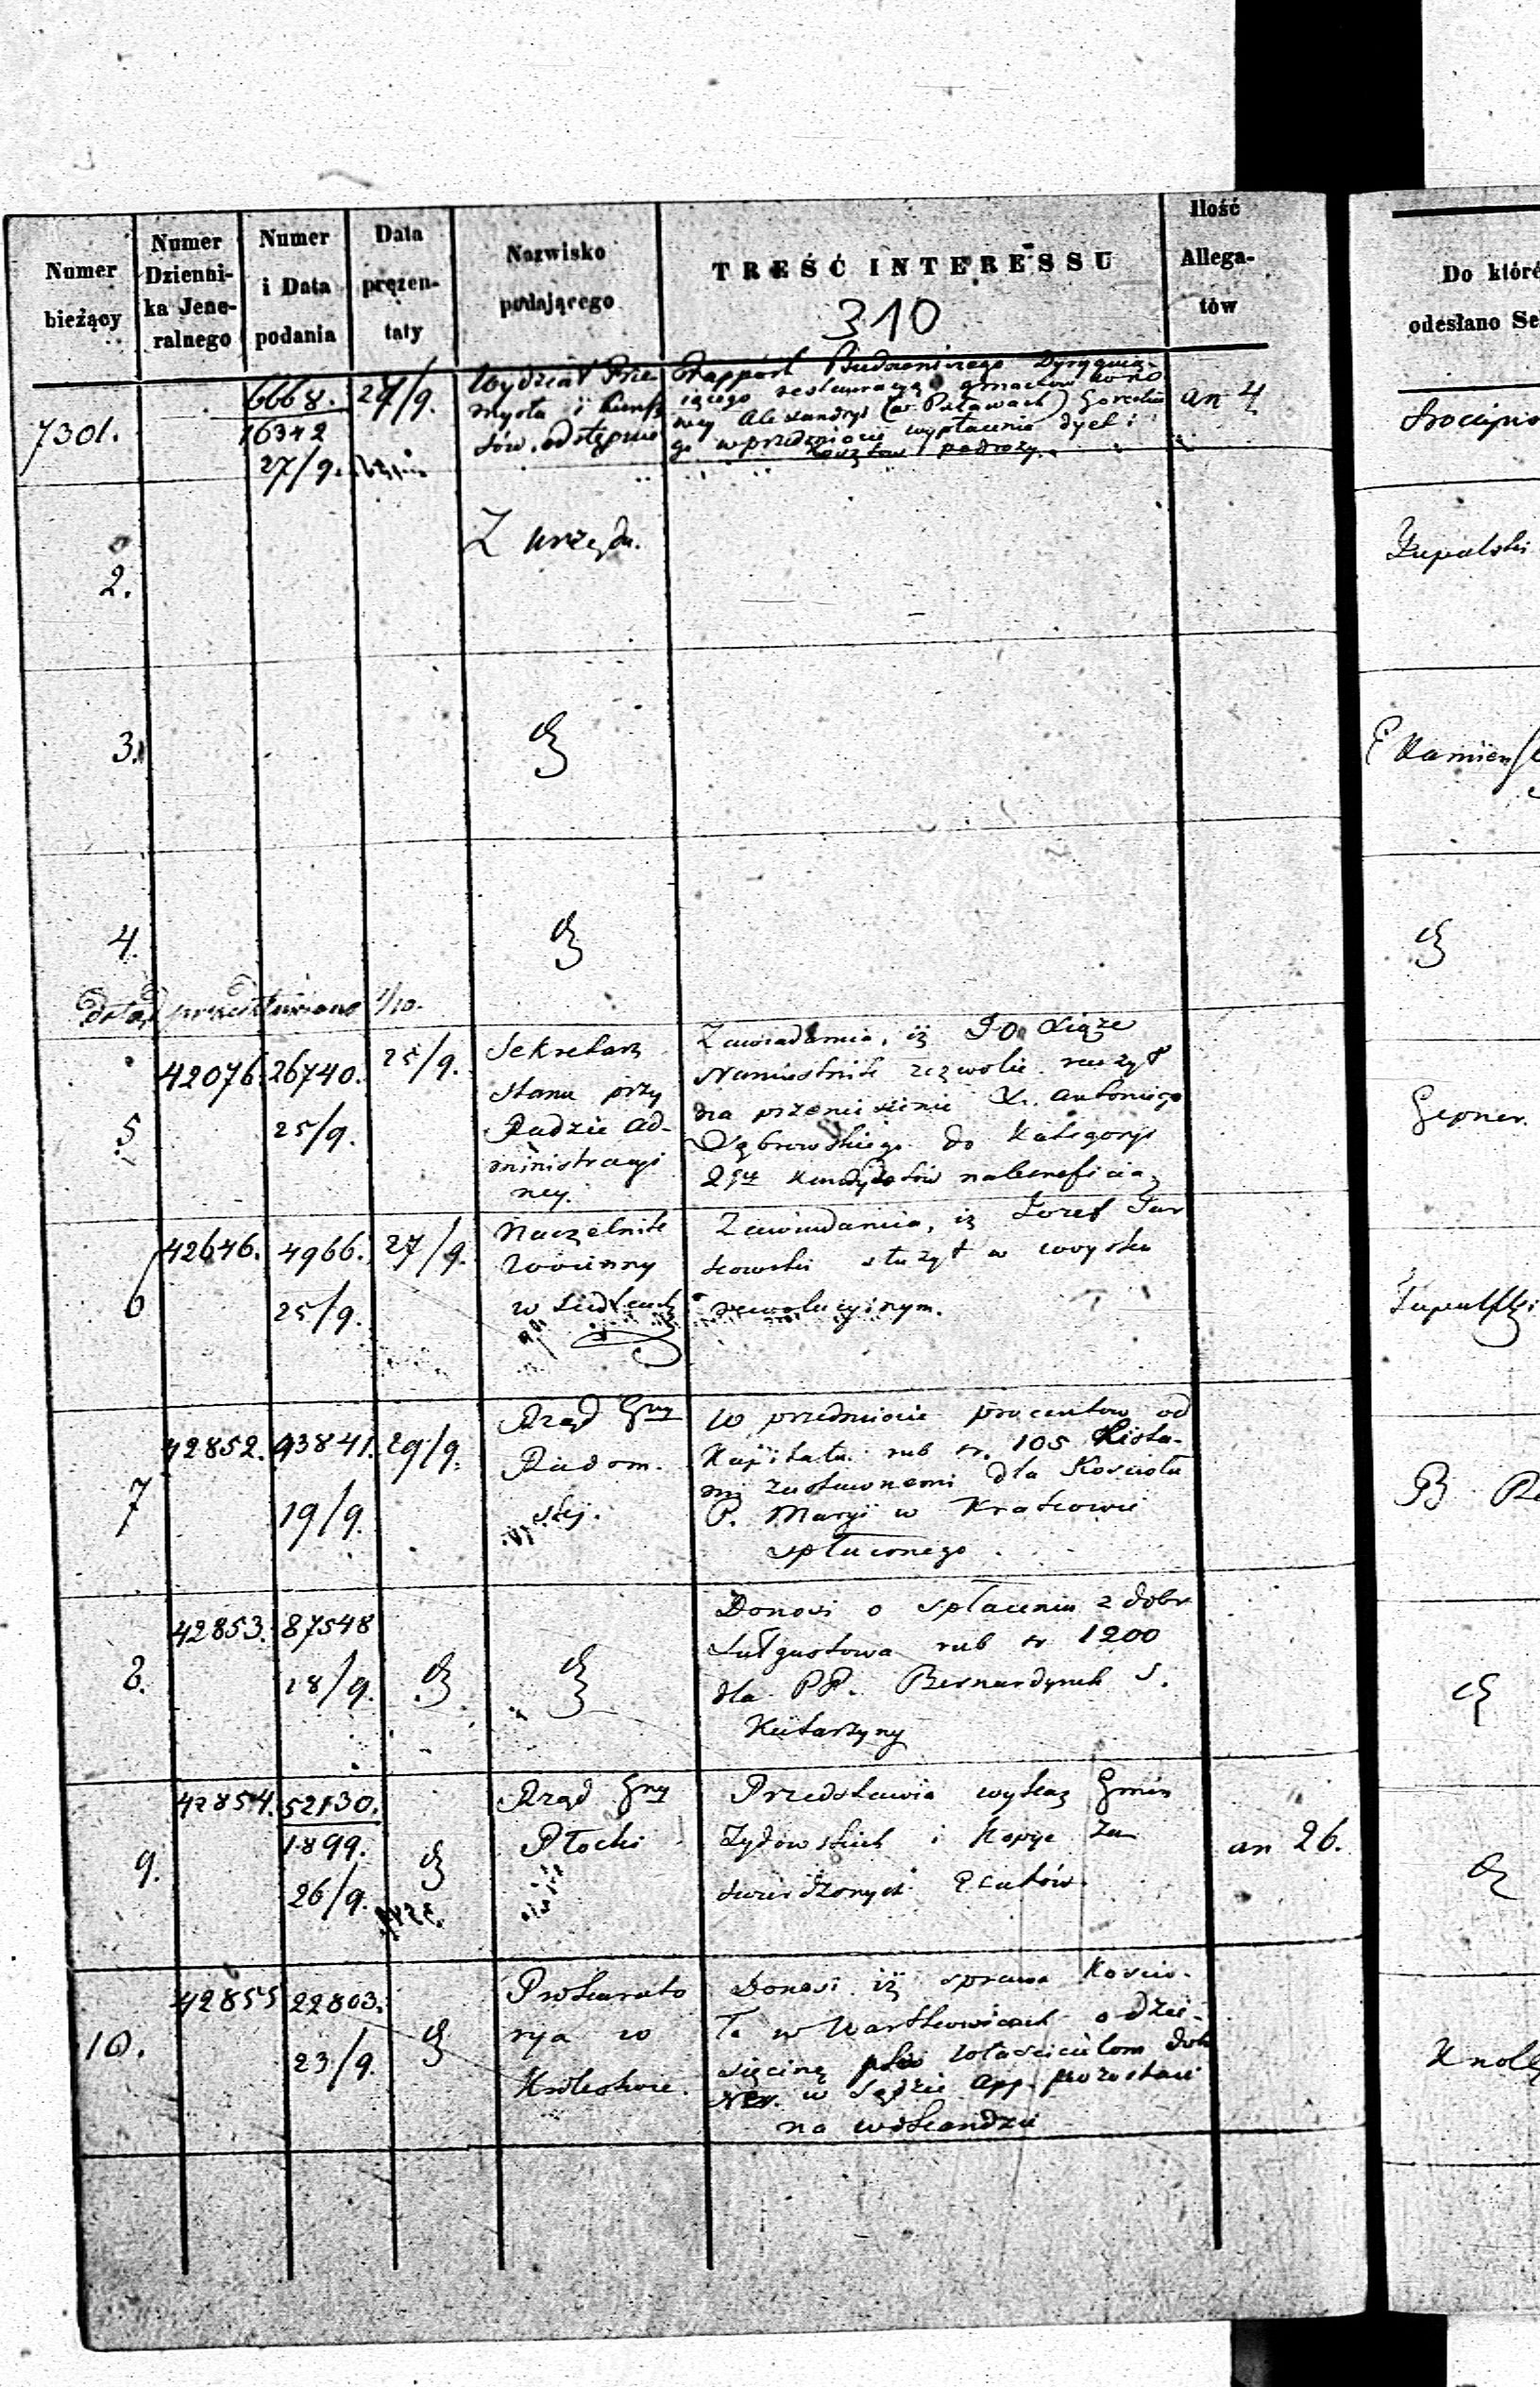 Numer bieżący
Numer Dzienni-ka Jene-ralnego
Numer i Data podania
Data prezen-taty
Nazwisko podającego
TREŚĆ INTERESSU
310
Ilość Allega-tów
Do któré
odesłano Se
7301.
6668.
16342
27/9.
29/9.
Wydział Prze-
mysłu i Kunsz
tów. odstępuie
Rapport Budowniczego Dyrygują-
iącego restauracyą gmachów w no
wey Alexandryi (w Puławach)
go w przedmiocie wypłacenia dyet i
kosztów podroży.
an 4
2.
Z urzędu.
Zupalski
3.
4.
dotąd przedstawiono 1/10.
5
42076.
26740.
25/9.
25/9.
Sekretarz
Stanu przy
Radzie Ad-
ministracyi
ney.
Zawiadamia, iż J.O. Xiąże
Namiestnik zezwolić raczył
na przeniesienie X. Antoniego
Dąbrowskiego do Kategoryi
2giy Kandydatów na beneficia
Gepner.
6
42646.
4966.
25/9.
27/9.
Naczelnik
Woienny
w Siedlcach
Zawiadamia, iż Jozef Tar
kowski służył w woysku
rewolucyinym.
7
42852.
93841.
19/9.
29/9.
Rząd Gny
Radom-
skj.
W przedmiocie procentow od
Kapitału rub sr. 105 Lista-
mi zastawnemi dla Kościoła
P. Maryi w Krakowie
spłaconego.
8.
42853.
87548
18/9.
Donosi o spłaceniu z dobr
rub sr 1200
dla PP. Bernardynek S.
Katarzyny
9.
42854.
52130.
1899.
26/9.
Rząd Gny
Płocki
Przedstawia wykaz Gmin
Żydowskich i kopje Za
twierdzonych Etatów.
an 26.
10.
42855
22803.
23/9.
Prokurato
rya w
Królestwie.
Donosi iż sprawa Kościo-
ła w Wartkowicach o dzie-
sięcinę płko właścicielom dóbr
w Sądzie App. pozostaie
na wokandzie